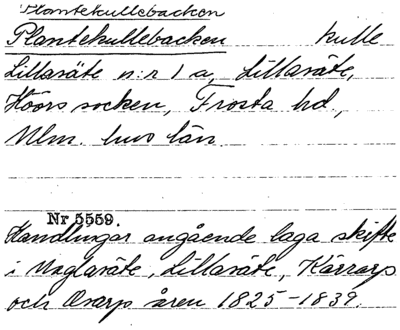 Plantekullebacken
Plantekullebacken kulle
Lillasäte n:r 1 a, Lillasäte,
Höörs socken, Frosta hd.,
Mlm. hus län
Nr 5559
Handlingar angående laga skifte
i Maglasäte, Lillasäte, Kärrarp
och Osarp åren 1825-1839.